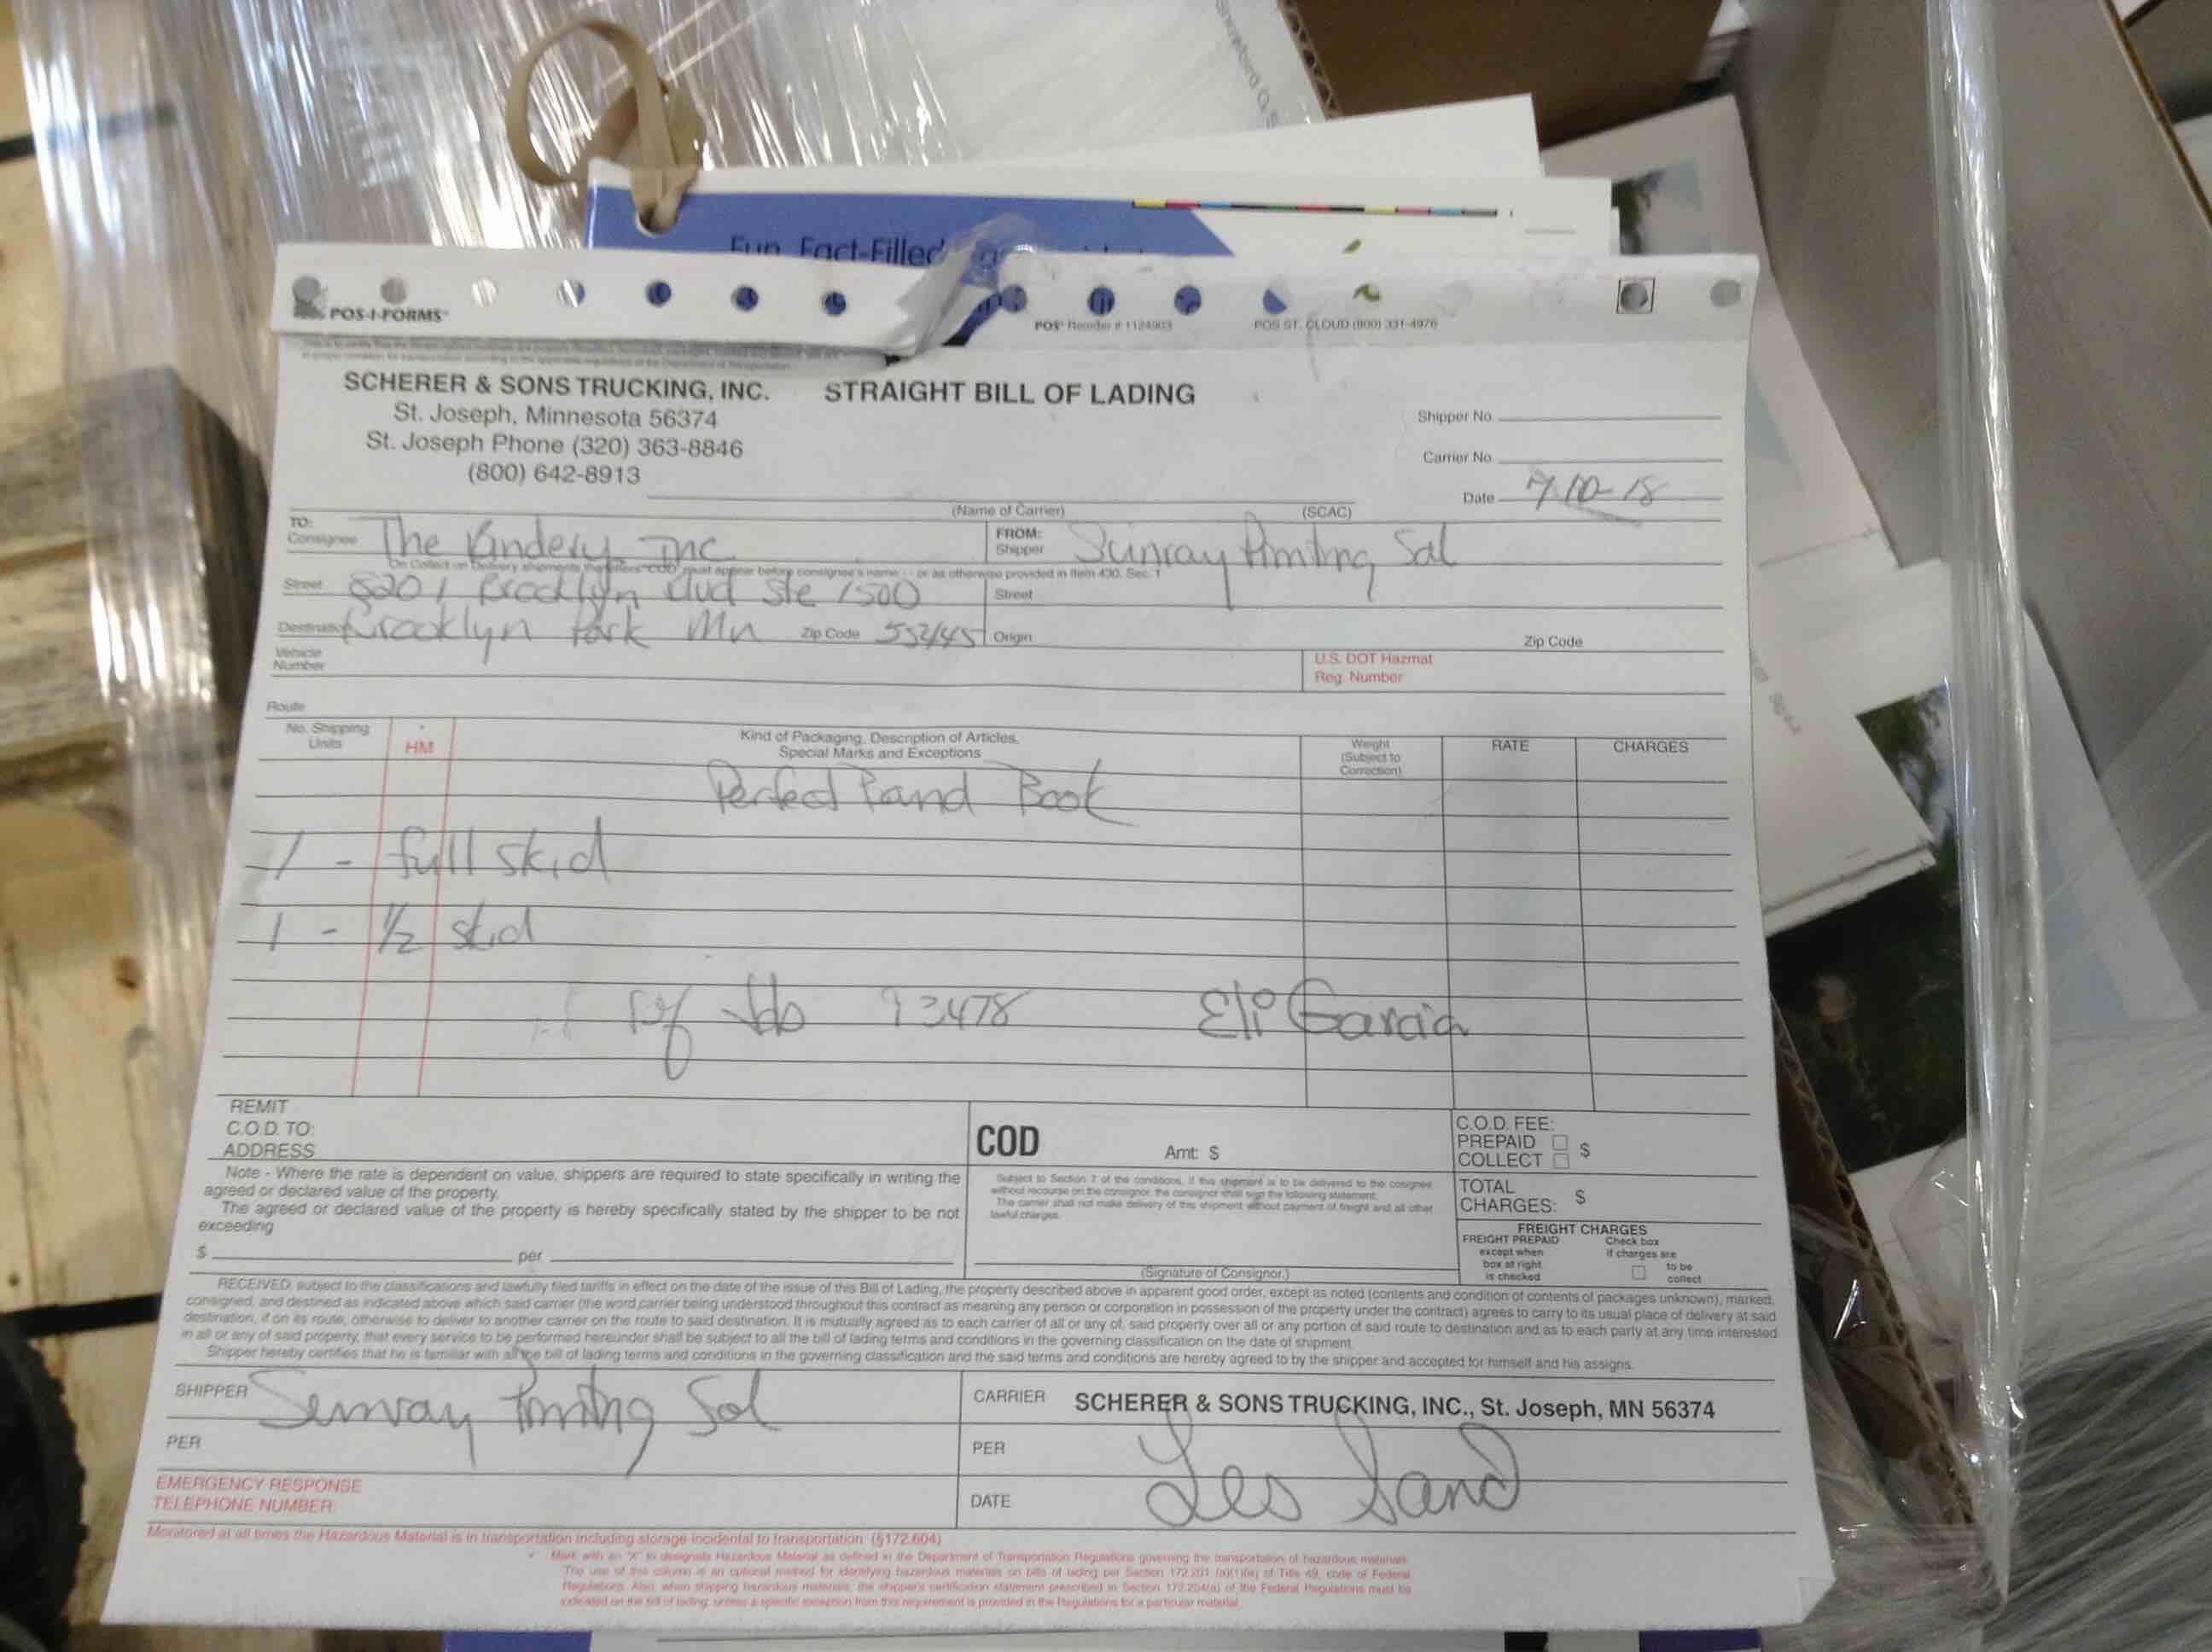 Fun, Fact-Filled
POS-I-FORMS
POS Reorder # 1124903
POS ST. CLOUD (800) 331-4976
SCHERER & SONS TRUCKING, INC.
STRAIGHT BILL OF LADING
St. Joseph, Minnesota 56374
St. Joseph Phone (320) 363-8846
(800) 642-8913
Shipper No.
Carrier No.
Date 7-10-18
(Name of Carrier) (SCAC)
TO: Consignee The Bindery Inc
FROM: Shipper Sunray Printing Sol
On Collect on Delivery shipments the letters "COD" must appear before consignee's name - or as otherwise provided in Item 430, Sec. 1
Street 8201 Brooklyn Blvd Ste 1500
Street
Destination Brooklyn Park Mn Zip Code 55445
Origin Zip Code
Vehicle Number
U.S. DOT Hazmat Reg. Number
Route
No. Shipping Units
* HM
Kind of Packaging, Description of Articles,
Special Marks and Exceptions
Weight (Subject to Correction)
RATE
CHARGES
Perfect Band Book
1 - full skid
1 - 1/2 skid
ref Job 93478
Eli Garcia
REMIT
C.O.D. TO:
ADDRESS
COD Amt: $
C.O.D. FEE:
PREPAID $
COLLECT
Note - Where the rate is dependent on value, shippers are required to state specifically in writing the
agreed or declared value of the property.
The agreed or declared value of the property is hereby specifically stated by the shipper to be not
exceeding
$ per
Subject to Section 7 of the conditions, if this shipment is to be delivered to the cosignee
without recourse on the consignor, the consignor shall sign the following statement:
The carrier shall not make delivery of this shipment without payment of freight and all other
lawful charges.
(Signature of Consignor.)
TOTAL
CHARGES: $
FREIGHT CHARGES
FREIGHT PREPAID
except when
box at right
is checked
Check box
if charges are
to be
collect
RECEIVED, subject to the classifications and lawfully filed tariffs in effect on the date of the issue of this Bill of Lading, the property described above in apparent good order, except as noted (contents and condition of contents of packages unknown), marked,
consigned, and destined as indicated above which said carrier (the word carrier being understood throughout this contract as meaning any person or corporation in possession of the property under the contract) agrees to carry to its usual place of delivery at said
destination, if on its route, otherwise to deliver to another carrier on the route to said destination. It is mutually agreed as to each carrier of all or any of, said property over all or any portion of said route to destination and as to each party at any time interested
in all or any of said property, that every service to be performed hereunder shall be subject to all the bill of lading terms and conditions in the governing classification on the date of shipment.
Shipper hereby certifies that he is familiar with all the bill of lading terms and conditions in the governing classification and the said terms and conditions are hereby agreed to by the shipper and accepted for himself and his assigns.
SHIPPER Sunray Printing Sol
CARRIER SCHERER & SONS TRUCKING, INC., St. Joseph, MN 56374
PER
PER Les Sand
EMERGENCY RESPONSE
TELEPHONE NUMBER:
DATE
Monitored at all times the Hazardous Material is in transportation including storage incidental to transportation (§172.604)
* Mark with an "X" to designate Hazardous Material as defined in the Department of Transportation Regulations governing the transportation of hazardous materials.
The use of this column is an optional method for identifying hazardous materials on bills of lading per Section 172.201 (a)(1)(iii) of Title 49, code of Federal
Regulations. Also, when shipping hazardous materials, the shipper's certification statement prescribed in Section 172.204(a) of the Federal Regulations must be
indicated on the bill of lading, unless a specific exception from this requirement is provided in the Regulations for a particular material.